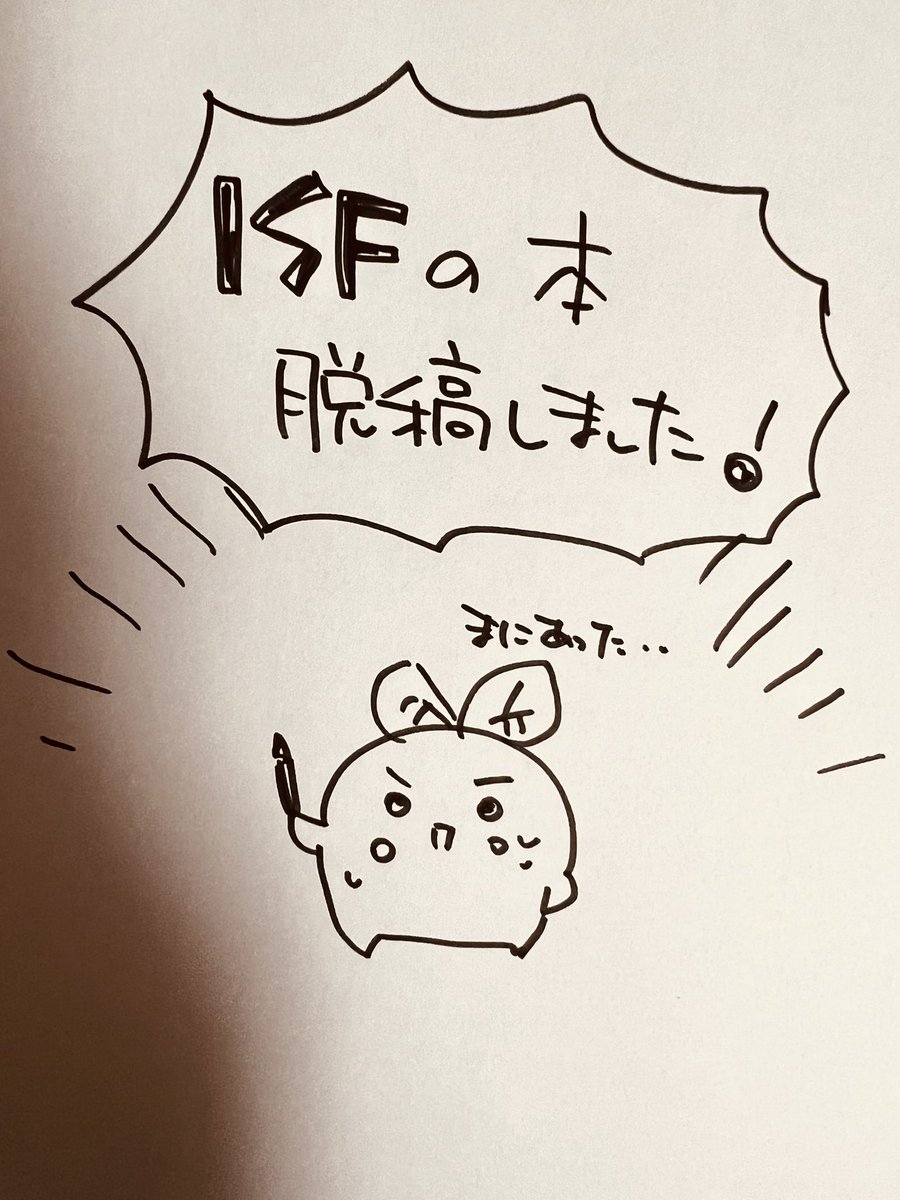 ISFの本
脱稿しました!
まにあった..